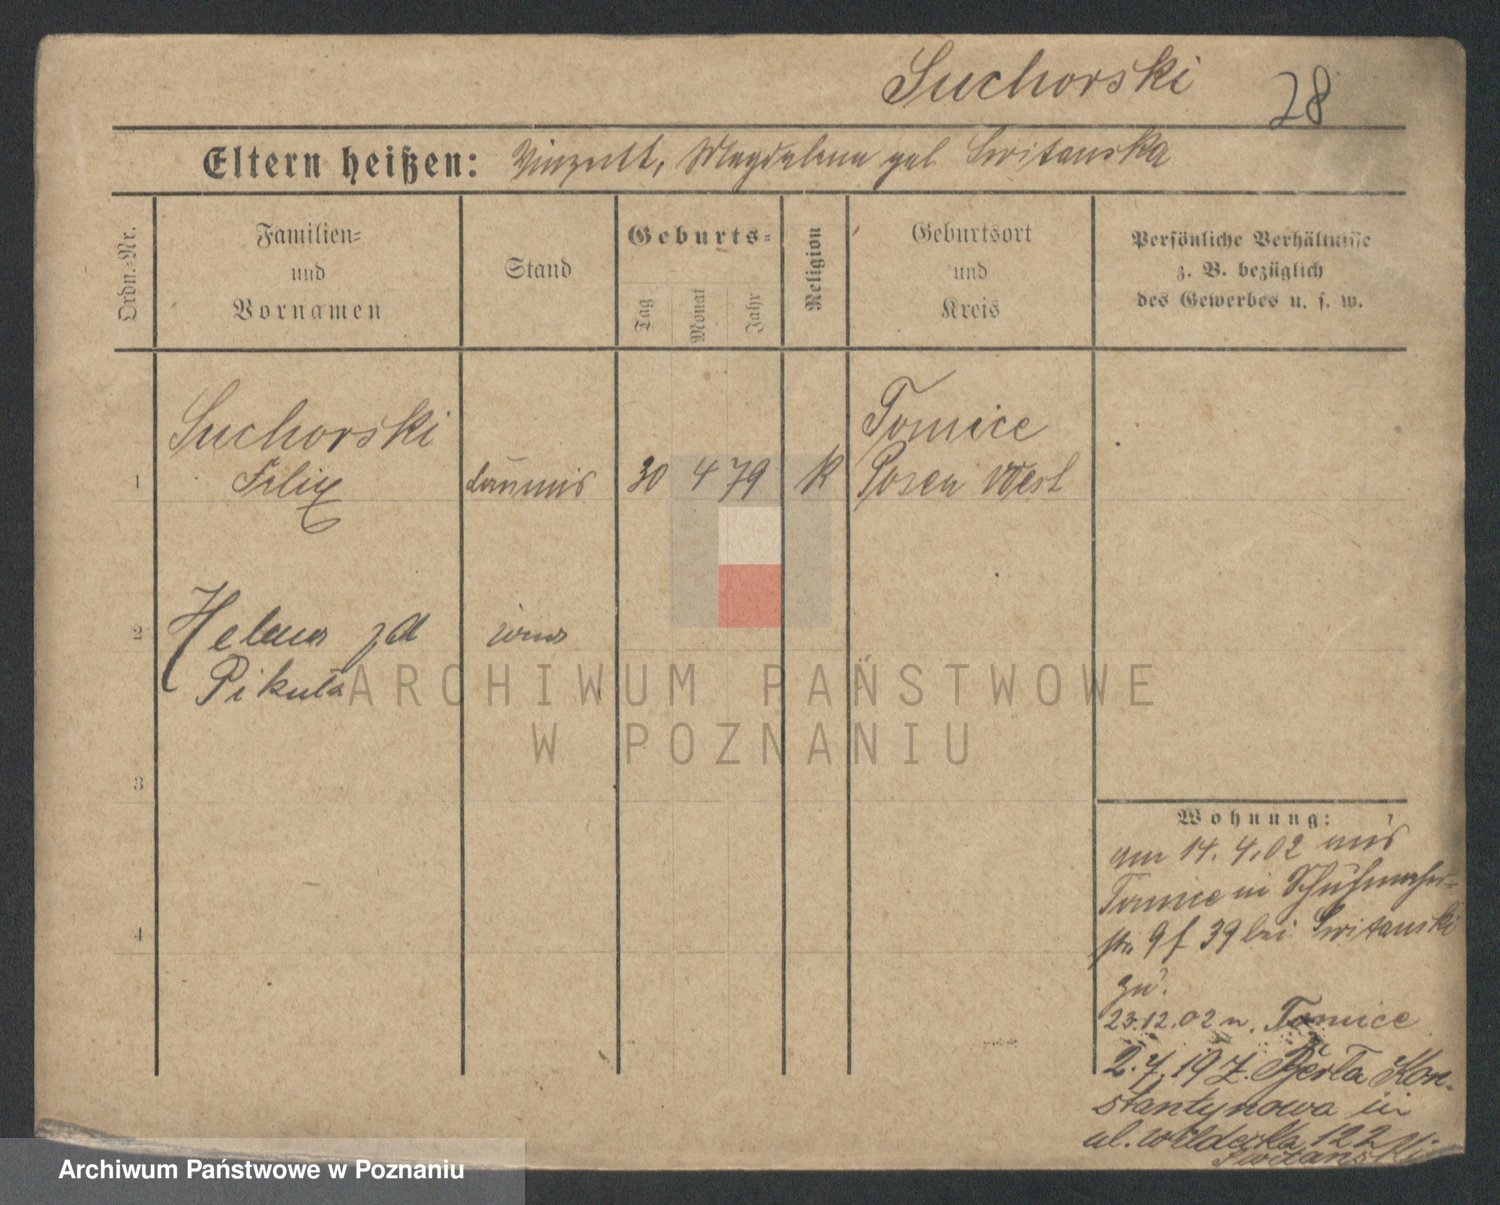 Suchorski 28
Eltern heißen: Vinzent, Magdalena geb Switanska
Ordn.-Nr.
Familien-
und
Vornamen
Stand
Geburts-
Tag
Monat
Jahr
Religion
Geburtsort
und
Kreis
Persönliche Verhältnisse
z. B. bezüglich
des Gewerbes u. s. w.
Suchorski
Tomice
1 Felix 30 4 79 K Posen West
2 Helena
Pikuła
3
4
Wohnung:
am 14. 4. 02 aus
Tomice in Schuhmacher-
str. 9 f 39 bei Switanski
zu.
23.12.02 n. Tomice
2.7.19 z. Konstantynowa
ul. 122
Switanski
ARCHIWUM PAŃSTWOWE
W POZNANIU
Archiwum Państwowe w Poznaniu